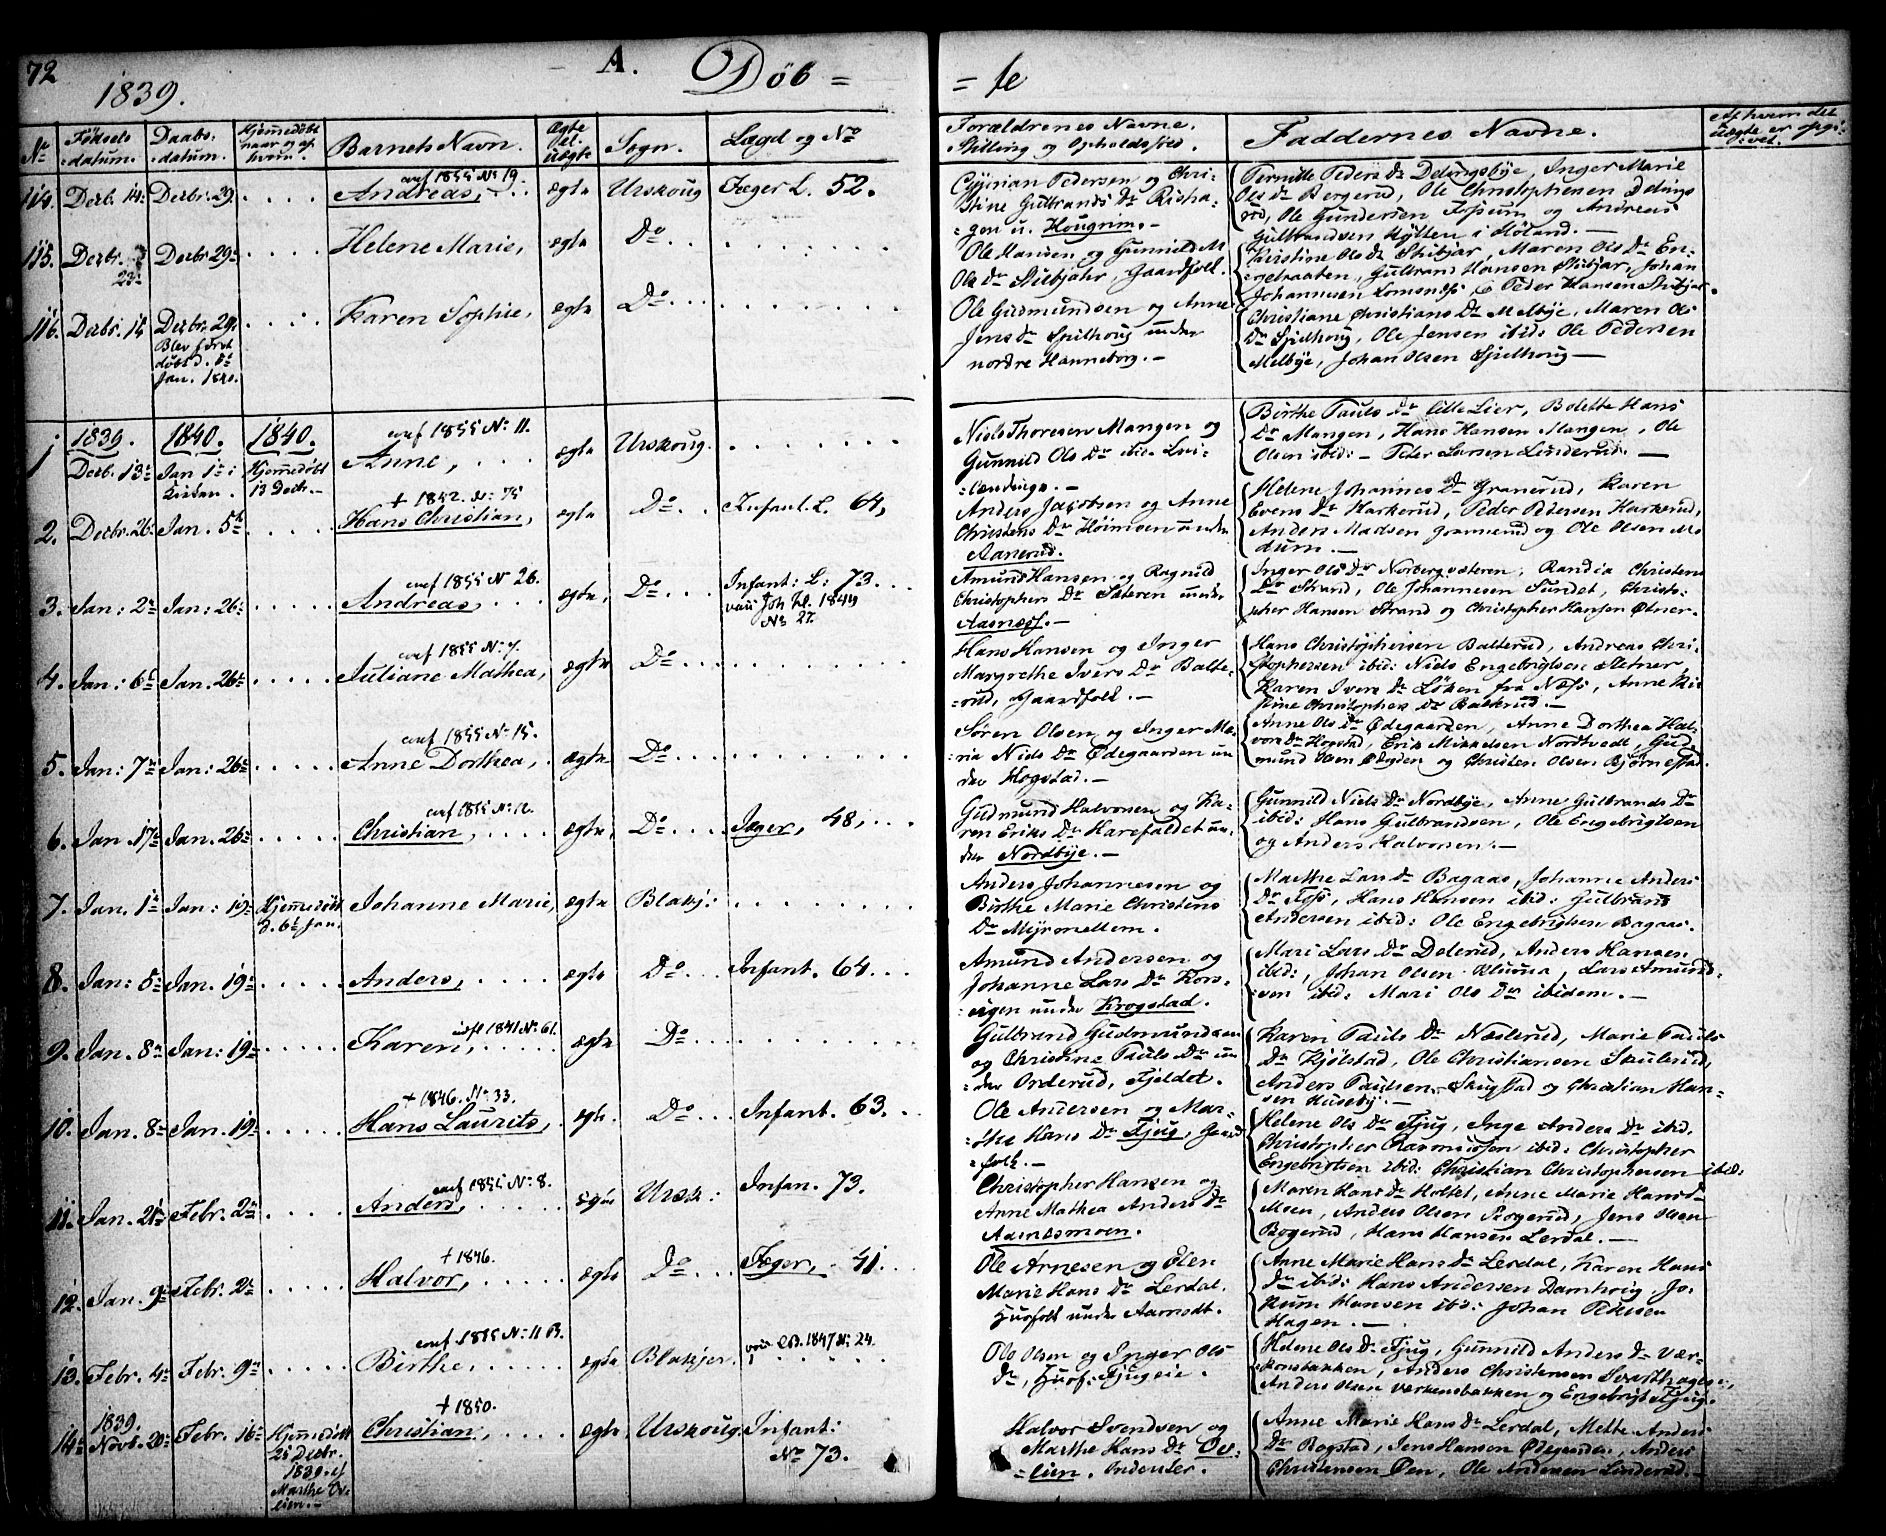 72
1839.
A. Døb =
= te
No
Fødsels datum.
Daabs: datum.
Hjemedøbt naar og af hvem.
Barnets Navn.
Ægte vel. uægte
Sogn.
Lægd og No
Forældrenes Navne. Stilling og Opholdssted.
Faddernes Navne.
Af hvem det uægte er opgi: :vet.
114. Decbr. 14: Decbr. 29. . . . . conf 1855 No 19. Andreas, ægte Urskoug Jæger L. 52.
Cyprian Pedersen og Chri-
stine Gulbrands Dr Risha-
=gen u. Hougrim.-
Pernille Peders Dr Delingsbye, Inger Marie
Ols Dr Bergerud, Ole Christophersen Delings
rud, Ole Gundersen Fossum og Andreas
Gulbrandsen Hylten i Høland.-
115. Decbr. 23- Decbr 29- . . . . Helene Marie, ægte Do . . .
Ole Hansen og Gunnild M
Ols Dr Skibjahr, Gaardfolk.
Christine Ols Dr Skibjar, Maren Ols Dr En-
:gebraaten, Gulbrand Hansen Skibjar, Johan
Johannesen Lomsnæss & Peder Hansen Skibjar.
116. Decbr. 14 Decbr. 29. . . . . Karen Sophie, ægte Do . . .
Blev først
døbt d. 5t
Jan. 1840.
Ole Gudmundsen og Anne
Jens Dr Spilhoug under
nordre Hanneborg.-
Christiane Christians Dr Melbye, Maren Ols
Dr Spilhoug, Ole Jensen ibid: Ole Pedersen
Melbye, Johan Olsen Spilhoug-
1839. 1840. 1840. conf 1855 No 11.
1 Decb. 13: Jan 1te : Hjemedøbt 13 Decbr.- Anne, . . . ægte Urskoug. . . . . .
Niels Thoresen Mangen og
Gunnild Ols Dr
Birthe Pauls Dr Lille Lier, Bolette Hans
Dr Mangen, Hans Hansen Mangen, Ole
Olsen ibid:- Peder Larsen Linderud.-
+ 1852. No 75
2. Decbr. 26. Jan. 5te . . . . Hans Christian, ægte Do . . Infant. L. 64,
Anders Jacobsen og Anne
Christens Dr Høimoen under
Aanerud.
Helene Johannes Dr Granerud, Karen
Evens Dr Harkerud, Peder Pedersen Harkerud,
Anders Madsen Granerud og Ole Olsen
dum.-
conf 1855 No 26.
3. Jan: 2- Jan: 26: . . . . . Andreas, . . . ægte, Do . . Infant: L: 73. . .
No 27.
Amund Hansen og Ragnild
Christophers Dr Sæteren under
Aasnæss.-
Inger Ols Dr Norbergsæteren, Randia Christens
Dr Strand, Ole Johannesen Sundet, Christo-
pher Hansen Strand og Christopher Hansen Østner.
conf 1855 No 7.
4. Jan: 6te Jan. 26- . . . . . Juliane Mathea, ægte Do . . . . .
Hans Hansen og Inger
Margrethe Ivers Dr Balte-
:rud, Gaardfolk.-
Hans Christophersen Balterud, Andreas Chri-
stophersen ibid: Niels Engebrigtsen Stetner,
Karen Ivers Dr Løken fra Næss, Anne Kri-
stine Christophers Dr Balterud.-
conf 1855 No 15.
5. Jan: 7te Jan: 26: . . . . . Anne Dorthea, ægte Do . . . . .
Søren Olsen og Inger Ma-
:ria Niels Dr Ødegaarden un
der Hogstad.-
Anne Ols Dr Ødegaarden, Anne Dorthea Hal-
vors Dr Hogstad, Erik Mikkelsen Nordtvedt, Gud-
mund Olsen Øgden og Christen Olsen Bjørnestad.
conf 1855 No 12.
6. Jan. 17te Jan. 26- . . . . . Christian, . . . . ægte, Do . . . . Jæger, 48, . . .
Gudmund Halvorsen og Ka-
ren Eriks Dr Harefaldet un-
der Nordbye.-
Gunnild Niels Dr Nordbye, Anne Gulbrands Dr
ibid: Hans Gulbrandsen, Ole Engebrigtsen
og Anders Halvorsen.-
7. Jan. 1te Jan: 19- Hjemedøbt d. 6te Jan. Johanne Marie, ægte Blakj: . . . . .
Anders Johannesen og
Birthe Marie Christens
Dr Myrmellem.
Marthe Lars Dr Bagaas, Johanne Anders
Dr Foss, Hans Hansen ibid: Gulbrand
Andersen ibid: Ole Engebrigtsen Bagaas.
8. Jan: 5te Jan. 19- . . . . . Anders, . . . . ægte Do . . . Infant. 64. . . .
Amund Andersen og
Johanne Lars Dr Kors-
:vigen under Krogstad.
Mari Lars Dr Delerud, Anders Hansen
ibid:, Johan Olsen Huma, Lars Amund-
sen ibid: Mari Ols Dr ibidem.-
1841 No 61.
9. Jan. 8te Jan: 19- . . . . . Karen, . . . . ægte Do . . . . .
Gulbrand Gudmundsen
og Christine Pauls Dr un
:der Orderud, Fjeldet.
Karen Pauls Dr Næslerud, Marie Pauls
Dr Kjølstad, Ole Christiansen Skulerud,
Anders Paulsen Skugstad og Christian Han-
sen Huseby.-
+ 1846. No 33.
10. Jan. 8te Jan. 19- . . . . . Hans Laurits, . ægte. Do . . . Infant. 63. . .
Ole Andersen og Mar-
:the Hans Dr Fjug, Gaard
=folk.-
Helene Ols Dr Fjug, Inge Anders Dr ibid.
Christopher Rasmussen ibid: Christopher
Engebrigtsen ibid: Christian Christophersen ibid:
conf 1855 No 8.
11. Jan. 21- Febr. 2- . . . . . Anders, . . . . ægte Ursk: Infan. 73.
Christopher Hansen og
Anne Mathea Anders Dr
Aarnesmoen.
Maren Hans Dr Holtet, Anne Marie Hans Dr
Moen, Anders Olsen Bogerud, Jens Olsen
Bogerud, Hans Hansen Lerdal.-
+ 1846.
12. Jan. 9- Febr. 2- . . . . . Halvor, . . . . . ægte Do . . . Jæger, 41. . .
Ole Arnesen og Elen
Marie Hans Dr Lerdal,
Husfolk under Aamodt.
Anne Marie Hans Dr Lerdal, Karen Hans
Dr ibid: Hans Andersen Damhoug, Jo-
Hansen ibid: Johan Petersen
Hagen.-
conf 1855 No 11 B.
13. Febr. 4te Febr. 9- . . . . . Birthe, . . . . . ægte Blakjer. 1847 No 24.
Ole Olsen og Inger Ols
Dr, Husf: Fjugeie.
Helene Ols Dr Fjug, Gunnild Anders Dr Vær-
kensbakken, Anders Christensen Svarthagen,
Anders Olsen Værkensbakken og Engebrigt Fjug.
+ 1850.
14te 1839. Novb. 20- Febr. 16- Hjemedøbt
25 Decbr.
1839 af
Marthe Øv-
eien.-
Christian, . . . . ægte Urskoug Infant: No 73.
Halvor Svendsen og
Marthe Hans Dr Øv-
=eien.
Anne Marie Hans Dr Lerdal, Mette Anders
Dr Bogstad, Jens Hanson Ødegarden, Anders
Christensen Øen, Ole Andersen Linderud.-